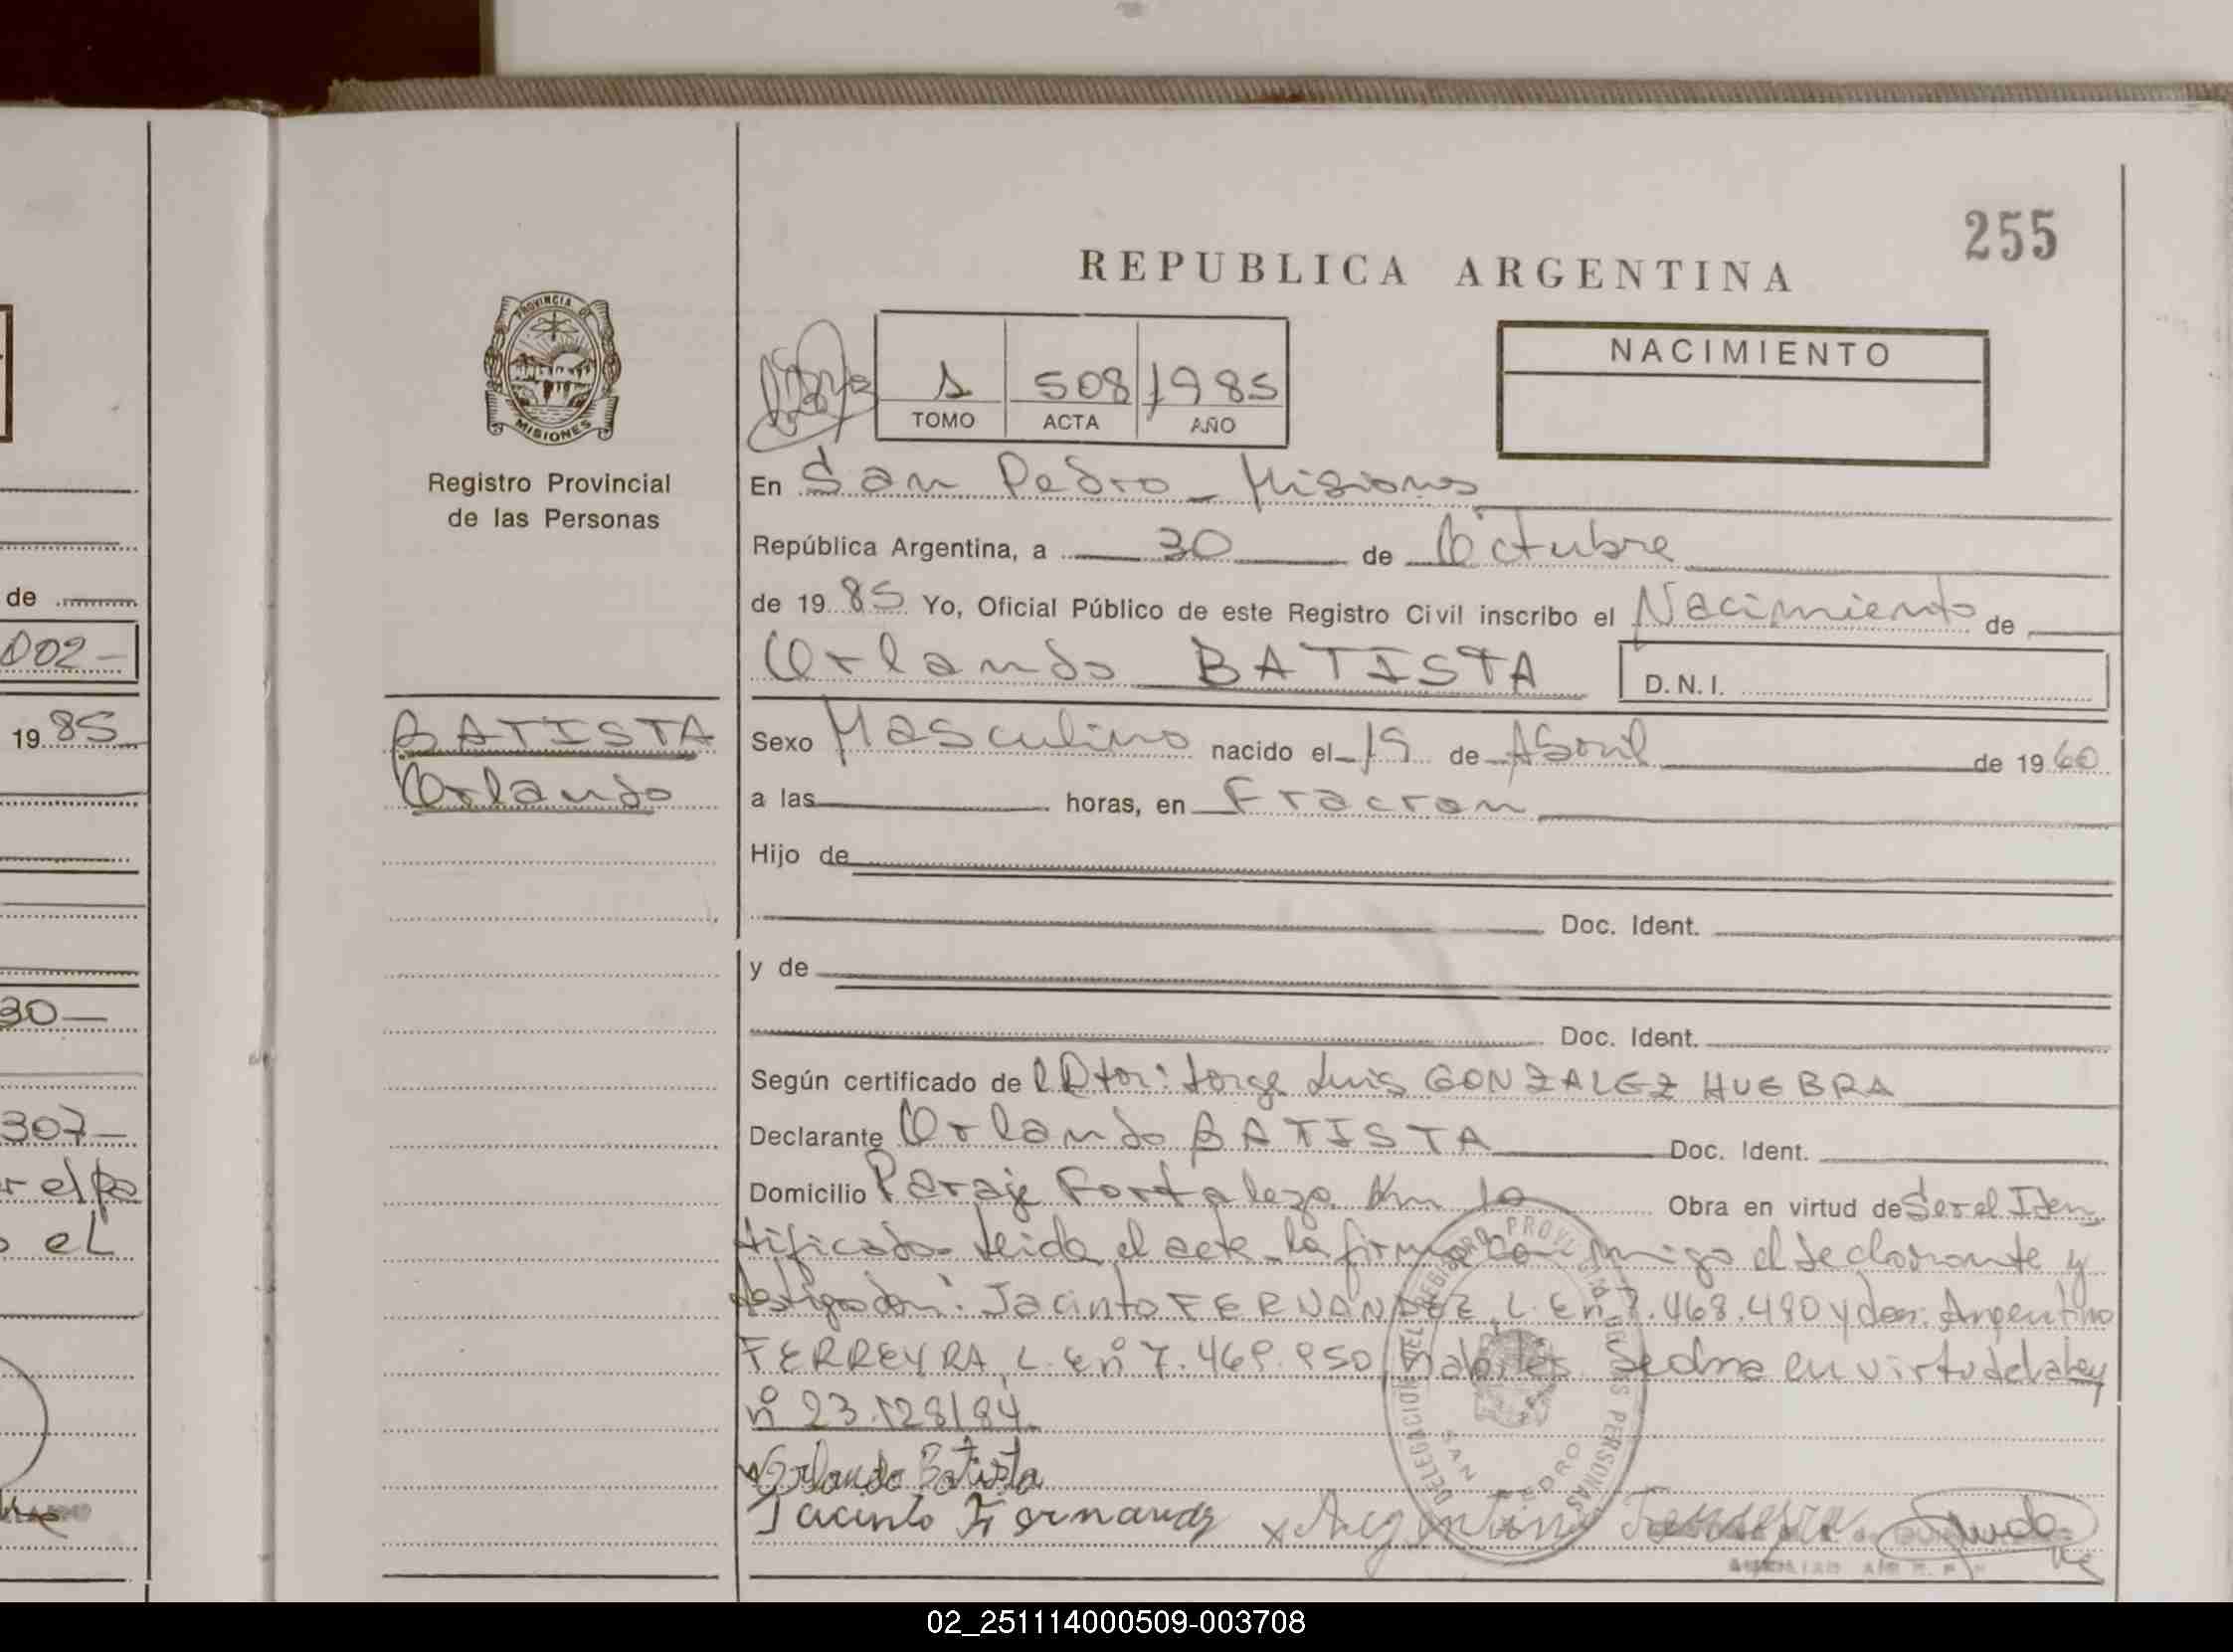 255
REPUBLICA ARGENTINA
PROVINCIA DE
MISIONES
Registro Provincial
de las Personas
1 508 1985
TOMO ACTA AÑO
NACIMIENTO
En San Pedro - Misiones
República Argentina, a 30 de Octubre
de 1985 Yo, Oficial Público de este Registro Civil inscribo el Nacimiento de
Orlando BATISTA D.N.I.
BATISTA
Orlando
Sexo Masculino nacido el 15 de Abril de 1960
a las horas, en Fracran
Hijo de
Doc. Ident.
y de
Doc. Ident.
Según certificado del Dtor: Jorge Luis GONZALEZ HUEBRA
Declarante Orlando BATISTA Doc. Ident.
Domicilio Paraje Fortaleza Km 10 Obra en virtud de Ser el Iden
tificado- Leida el acta la firma conmigo el declarante y
testigos don: Jacinto FERNANDEZ, L. E nº 7.468.490 y don: Argentino
FERREYRA, L. E nº 7.469.950 habiles en virtud de la ley
nº 23.128/84.
Orlando Batista
Jacinto Fernandez x Argentino Ferreyra
DELEGACION DEL REGISTRO PROVINCIAL DE LAS PERSONAS
SAN PEDRO
de
002-
1985
30-
307-
el
02_251114000509-003708